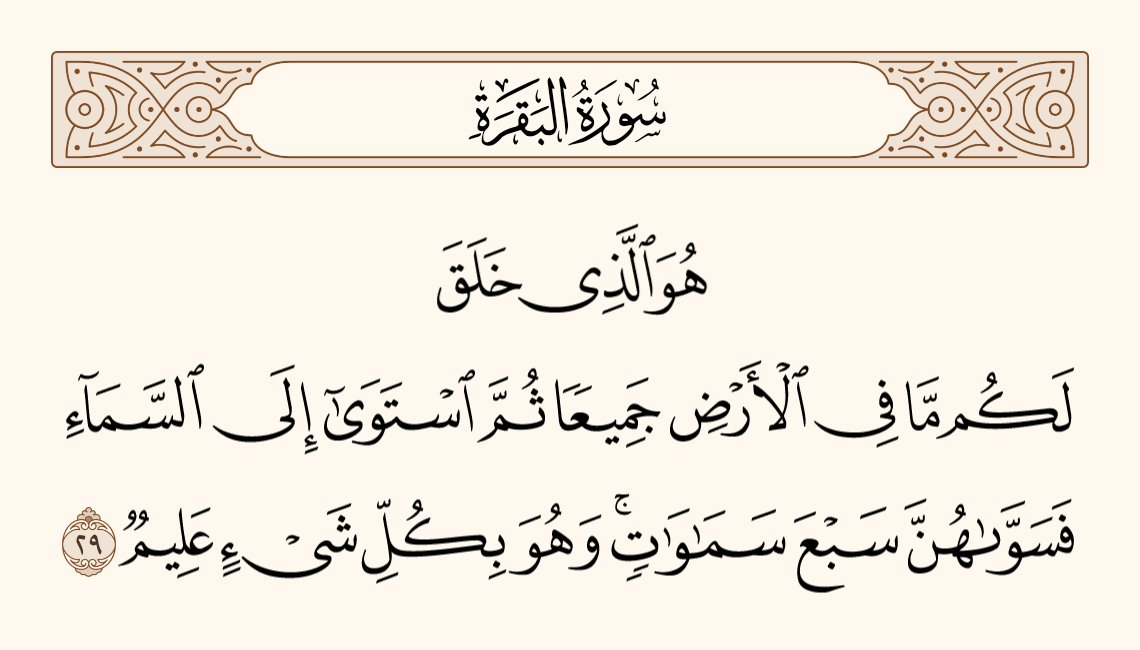 سُورَةُ البَقَرَةِ
هُوَ ٱلَّذِى خَلَقَ
لَكُم مَّا فِى ٱلۡأَرۡضِ جَمِيعٗا ثُمَّ ٱسۡتَوَىٰٓ إِلَى ٱلسَّمَآءِ
فَسَوَّىٰهُنَّ سَبۡعَ سَمَٰوَٰتٖۚ وَهُوَ بِكُلِّ شَىۡءٍ عَلِيمٞ ٢٩